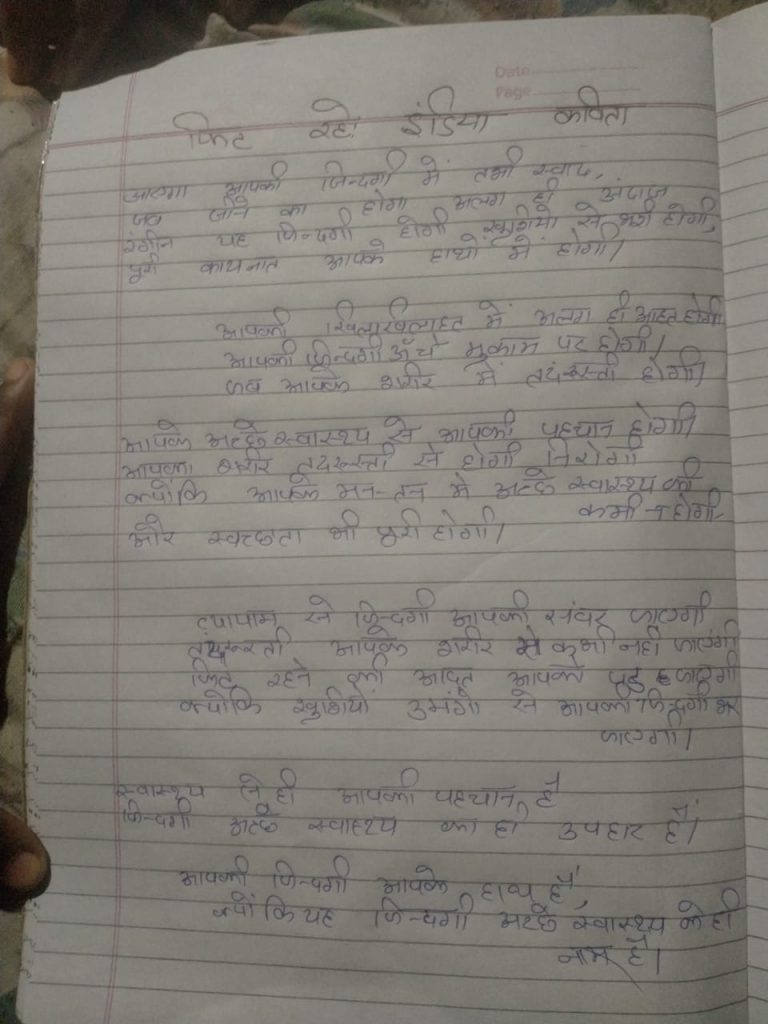 Date
Page
फिट रहो इंडिया कविता
आएगा आपकी जिन्दगी में तभी स्वाद,
जब जीने का होगा अलग ही अंदाज
रंगीन यह जिन्दगी होगी खुशियो से भरी होगी,
पुरी कायनात आपके हाथों में होगी।
आपकी खिलखिलाहट में अलग ही आहत होगी
आपकी जिन्दगी ऊँचे मुकाम पर होगी।
जब आपके शरीर में तदंरूस्ती होगी।
आपके अच्छे स्वास्थ्य से आपकी पहचान होगी।
आपका शरीर तदंरूस्ती से होगी निरोगी
क्योंकि आपके मन-तन मे अच्छे स्वास्थ्य की
कमी न होगी,
और स्वच्छता भी पुरी होगी।
व्यायाम से जिन्दगी आपकी संवर जाएगी
तंदरूस्ती आपके शरीर से कभी नहीं जाएगी
फिट रहने की आदत आपको पड़ जाएगी
क्योकि खुशियों उमंगो से आपकी जिन्दगी भर
जाएगी।
स्वास्थ्य से ही आपकी पहचान है
जिन्दगी अच्छे स्वास्थ्य का ही उपहार है।
आपकी जिन्दगी आपके हाथ है,
क्योंकि यह जिन्दगी अच्छे स्वास्थ्य के ही
नाम है।